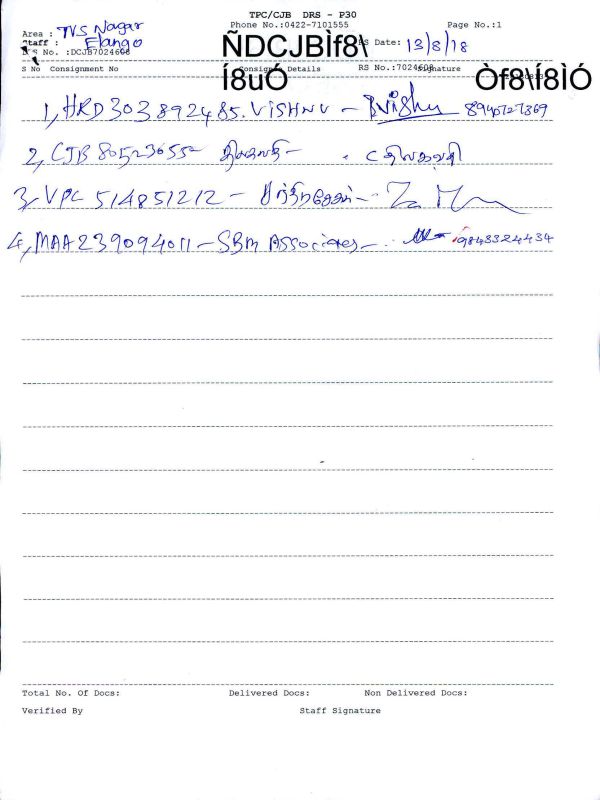 TPC/CJB DRS - P30
Phone No.:0422-7101555 Page No.:1
Area : TVS Nagar
Staff : Elango ÑDCJBÌf8\ Date: 13/8/18
No. :DCJB7024608 Í8uÓ Òf8\Í8ÌÓ
S No Consignment No Consign Details RS No.:7024608 Signature
1, HRD303892485. VISHNU - 8940727369
2, CJB 80523655
3, VPC 514851212 -
4, MAA239094011 - SBM Associates - 9843324434
Total No. Of Docs: Delivered Docs: Non Delivered Docs:
Verified By Staff Signature